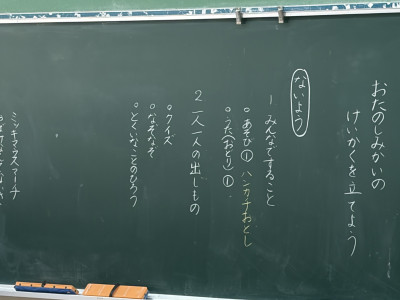 おたのしみかいの
けいかくを立てよう
ないよう
1 みんなですること
○あそび① ハンカチおとし
○うた(おどり)①
2 一人一人の出しもの
○クイズ
○なぞなぞ
○とくいなことのひろう
ミッキーマウスマーチ